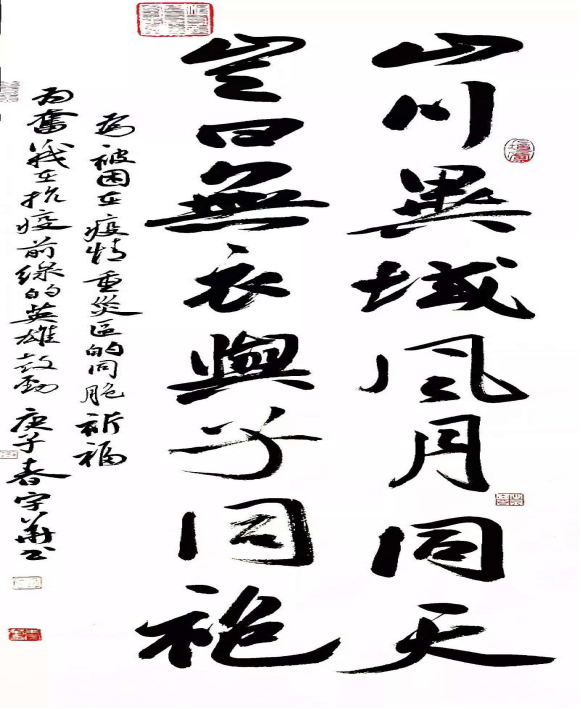 山川異域風月同天
豈曰無衣與子同袍
為被困在疫情重災区的同胞祈福
為奮战在抗疫前缐的英雄鼓勁 庚子春宇華书